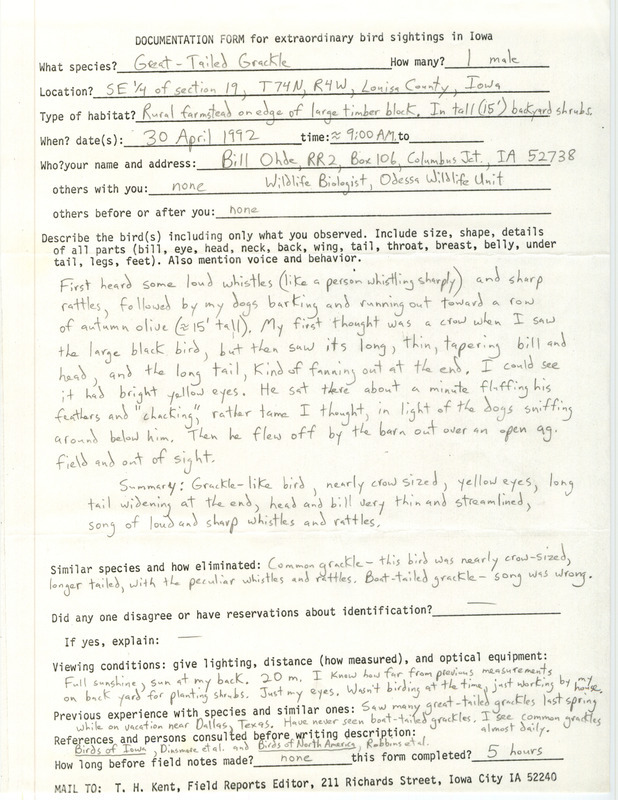 DOCUMENTATION FORM for extraordinary bird sightings in Iowa
What species? Great-Tailed Grackle How many? 1 male
Location? SE 1/4 of section 19, T74N, R4W, Louisa County, Iowa
Type of habitat? Rural farmstead on edge of large timber block. In tall (15') backyard shrubs.
When? date(s): 30 April 1992 time: ≈ 9:00 AM to
Who? your name and address: Bill Ohde, RR2, Box 106, Columbus Jct., IA 52738
others with you: none Wildlife Biologist, Odessa Wildlife Unit
others before or after you: none
Describe the bird(s) including only what you observed. Include size, shape, details
of all parts (bill, eye, head, neck, back, wing, tail, throat, breast, belly, under
tail, legs, feet). Also mention voice and behavior.
First heard some loud whistles (like a person whistling sharply) and sharp
rattles, followed by my dogs barking and running out toward a row
of autumn olive (≈15' tall). My first thought was a crow when I saw
the large black bird, but then saw its long, thin, tapering bill and
head, and the long tail, kind of fanning out at the end. I could see
it had bright yellow eyes. He sat there about a minute fluffing his
feathers and "chacking", rather tame I thought, in light of the dogs sniffing
around below him. Then he flew off by the barn out over an open ag.
field and out of sight.
Summary: Grackle-like bird, nearly crow sized, yellow eyes, long
tail widening at the end, head and bill very thin and streamlined,
song of loud and sharp whistles and rattles.
Similar species and how eliminated: Common grackle - this bird was nearly crow-sized,
longer tailed, with the peculiar whistles and rattles. Boat-tailed grackle - song was wrong.
Did any one disagree or have reservations about identification? —
If yes, explain: —
Viewing conditions: give lighting, distance (how measured), and optical equipment:
Full sunshine, sun at my back. 20 m. I know how far from previous measurements
on back yard for planting shrubs. Just my eyes. Wasn't birding at the time, just working by my house.
Previous experience with species and similar ones: Saw many great-tailed grackles last spring
while on vacation near Dallas, Texas. Have never seen boat-tailed grackles. I see common grackles
almost daily.
References and persons consulted before writing description:
Birds of Iowa, Dinsmore et al. and Birds of North America, Robbins et al.
How long before field notes made? none this form completed? 5 hours
MAIL TO: T. H. Kent, Field Reports Editor, 211 Richards Street, Iowa City IA 52240